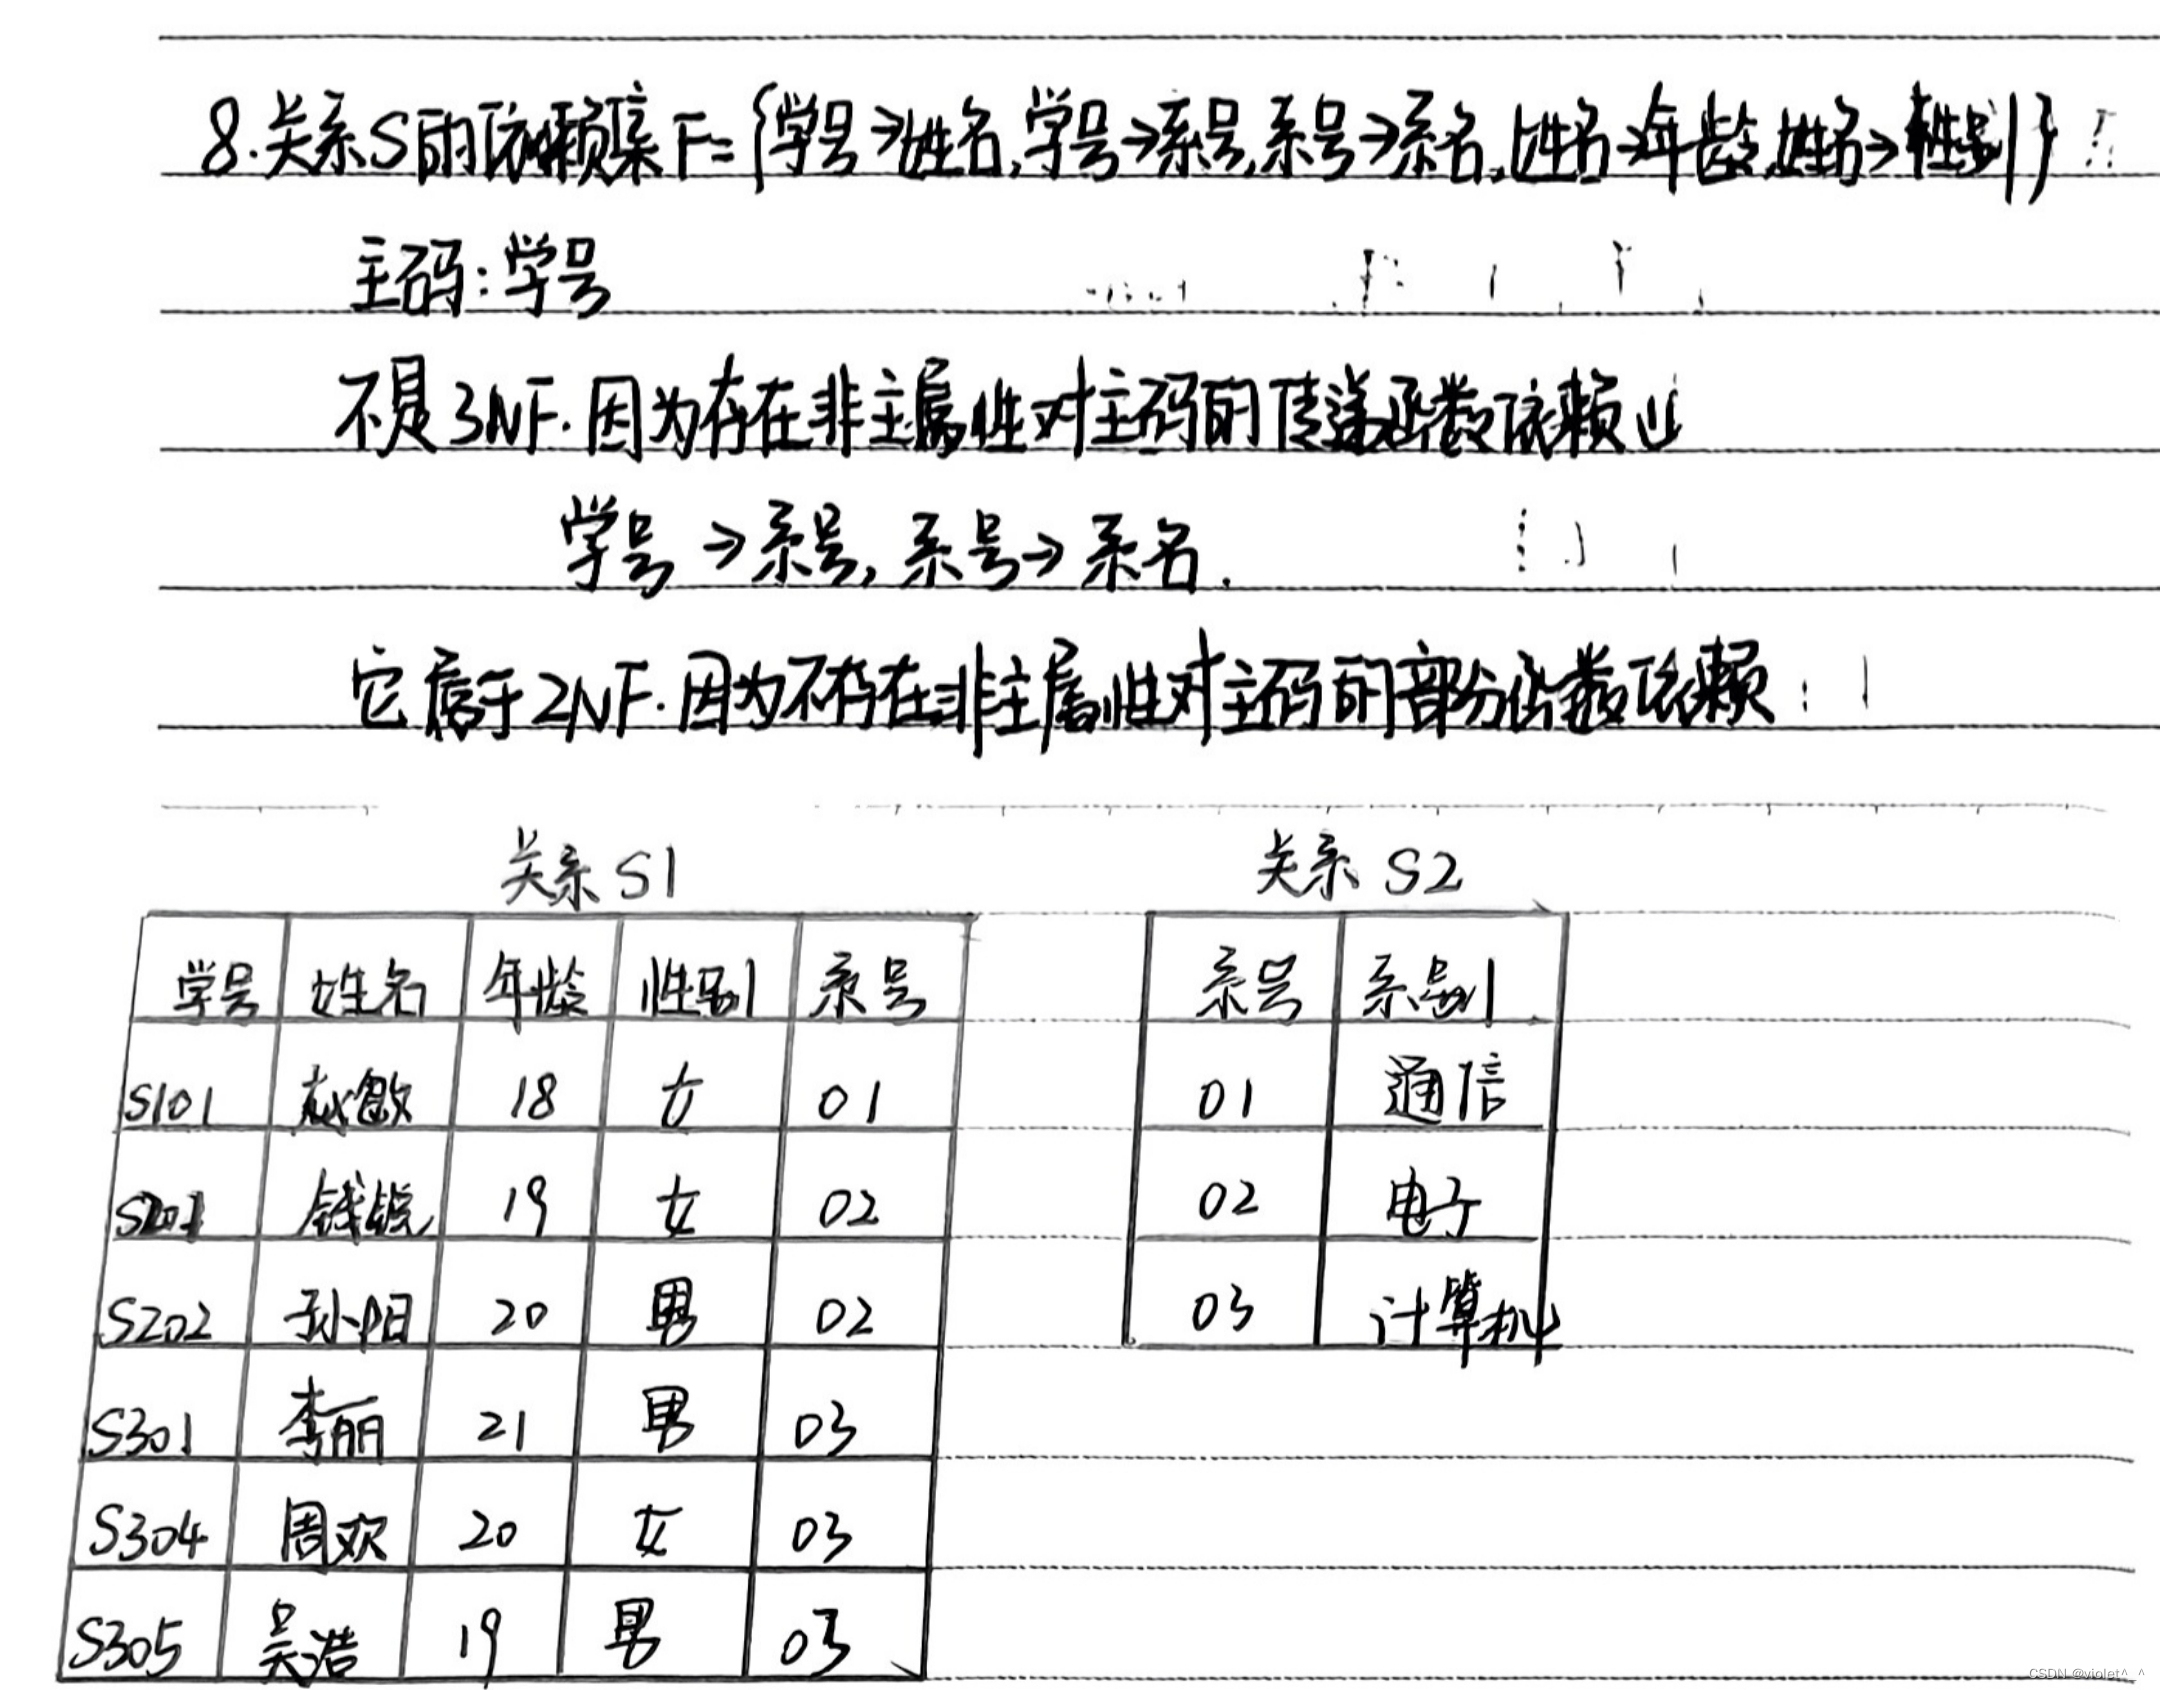 8.关系S的依赖集F={学号→姓名,学号→系号,系号→系名,姓名→年龄,姓名→性别}
主码:学号
不是3NF.因为存在非主属性对主码的传递函数依赖
学号→系号,系号→系名.
它属于2NF.因为不存在非主属性对主码的部分函数依赖
关系S1 关系S2
学号 姓名 年龄 性别 系号 系号 系别
S101 18 女 01 01 通信
S201 钱锐 19 女 02 02 电子
S202 孙阳 20 男 02 03 计算机
S301 李丽 21 男 03
S304 周欢 20 女 03
S305 吴浩 19 男 03
CSDN @violet^_^